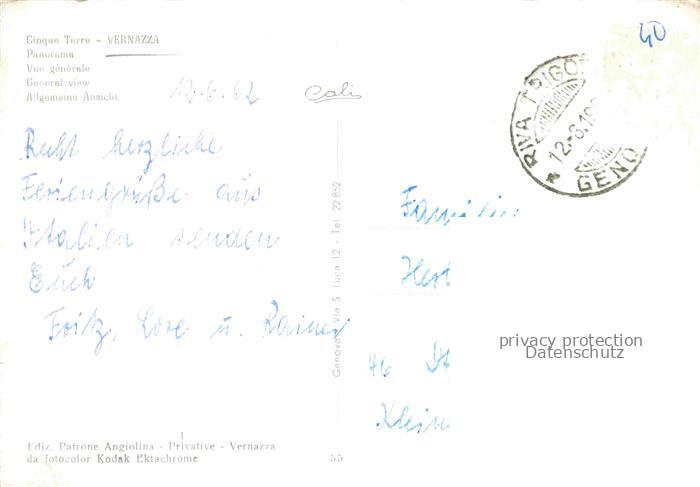 40
Cinque Terre - VERNAZZA
Panorama
Vue générale
General view
Allgemeine Ansicht
12.6.62
Cali
RIVA TRIGO
12.-6.19
GENO
Recht herzliche
Feriengrüße aus
Italien senden
Euch
Fritz, Lore u. Rainer
Familie
46
Klein
privacy protection
Datenschutz
Genova - Via S. Luca 12 - Tel. 22.852
Ediz. Patrone Angiolina - Privative - Vernazza
da fotocolor Kodak Ektachrome
55